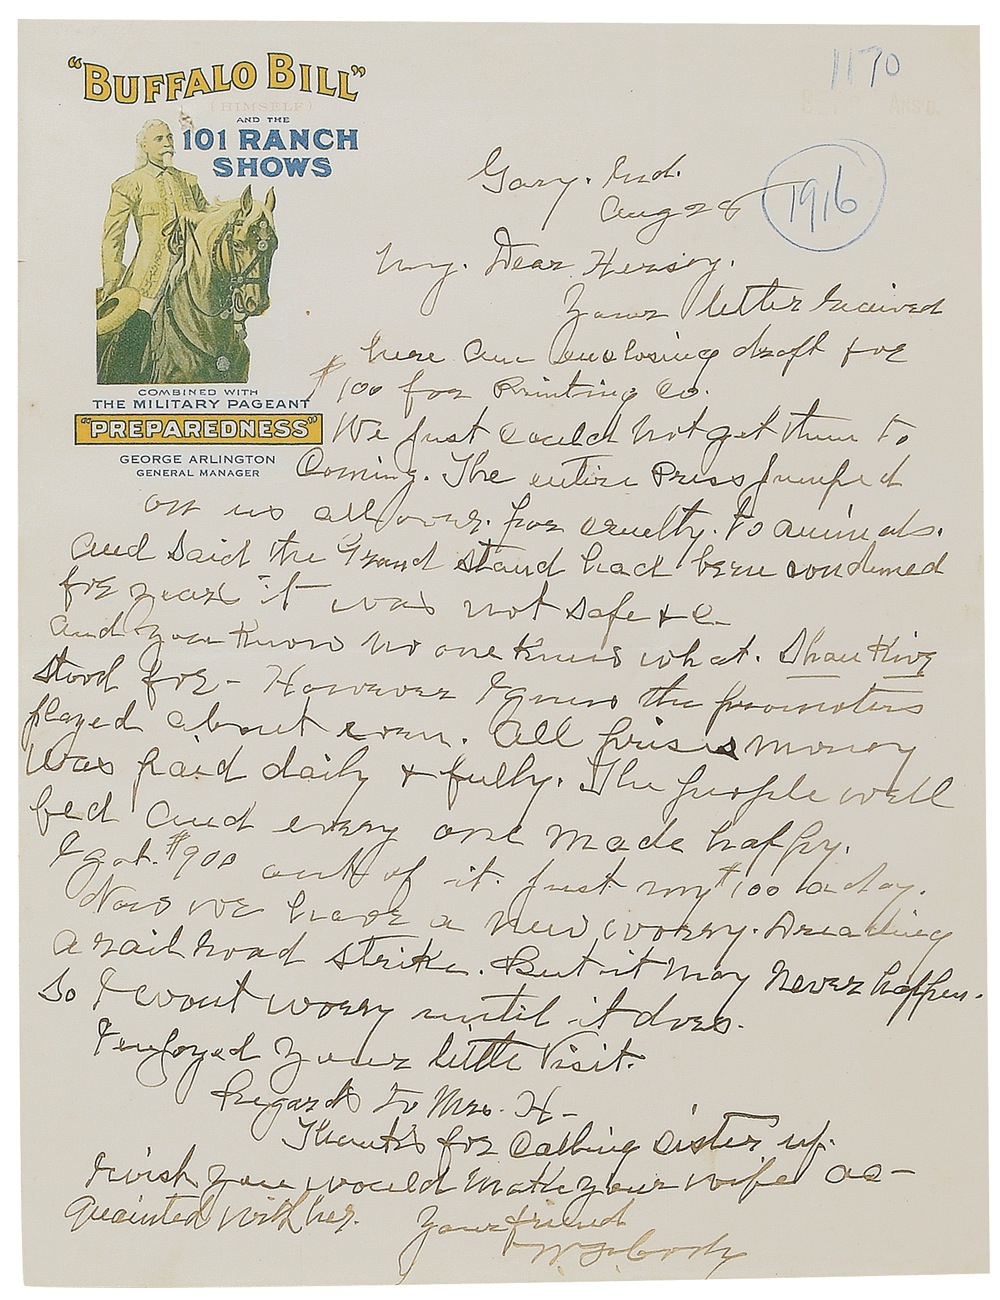 "BUFFALO BILL"
(HIMSELF)
AND THE
101 RANCH
SHOWS
COMBINED WITH
THE MILITARY PAGEANT
"PREPAREDNESS"
GEORGE ARLINGTON
GENERAL MANAGER
1170
Ans'd.
1916
Gary. Ind.
Aug 28
My. Dear Hersey.
Your letter received
here am enclosing draft for
$100 for Printing Co.
We just could not get them to
Coming. The entire Press jumped
on us all over. for cruelty. to animals.
and said the Grand stand had been condemed
for years it was not safe & C.
and you know no one knew what. Shan Kive
stood for - However I guess the promoters
played about even. All prise money
was paid daily & fully. The people well
fed and every one made happy.
I got. $900 out of it. Just my $100 a day.
Now we have a new worry. Dreading
a railroad strike. But it may never happen.
So I wont worry until it does.
I enjoyed your little Visit.
Regards to Mrs. H-
Thanks for calling sister up.
I wish you would make your wife ac-
quainted with her.
Your friend
W. F. Cody